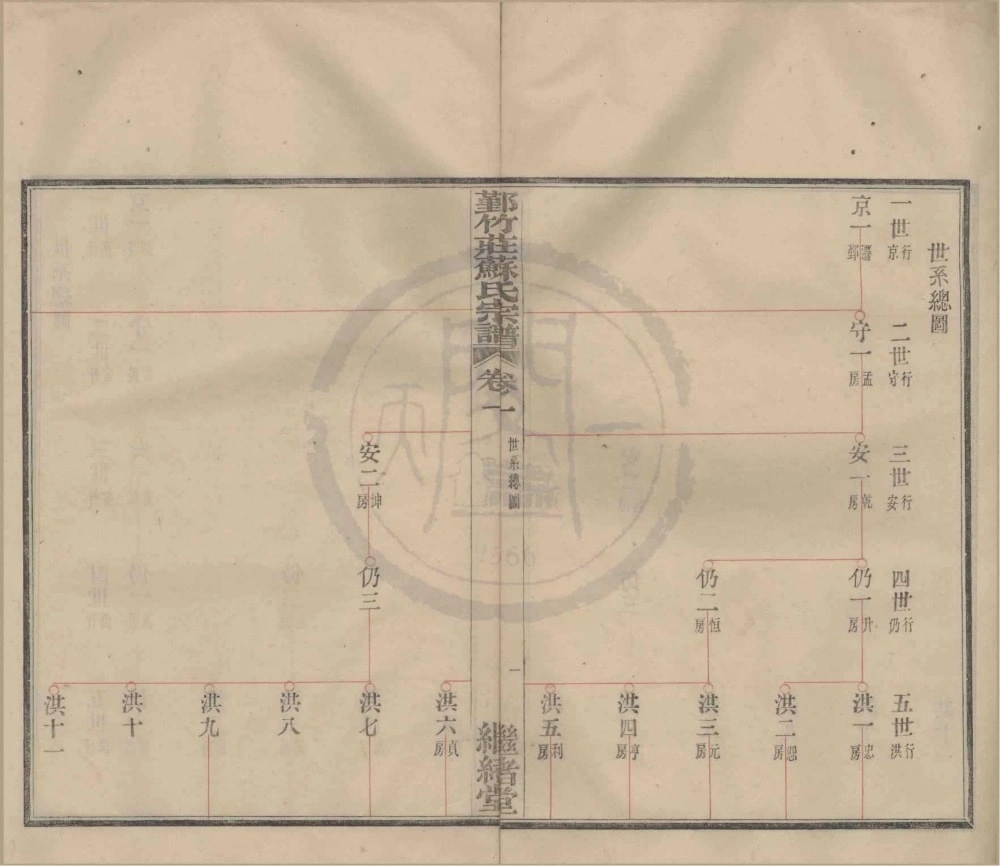 世系總圖
一世 京行
京一 遷鄞
二世 守行
守一 孟房
三世 安行
安一 乾房
四世 仍行
仍一 升房
仍二 恒房
五世 洪行
洪一 忠房
洪二 恕房
洪三 元房
洪四 亨房
洪五 利房
鄞竹莊蘇氏宗譜
卷一
世系總圖
一
繼緒堂
安二 坤房
仍三
洪六 貞房
洪七
洪八
洪九
洪十
洪十一
1966